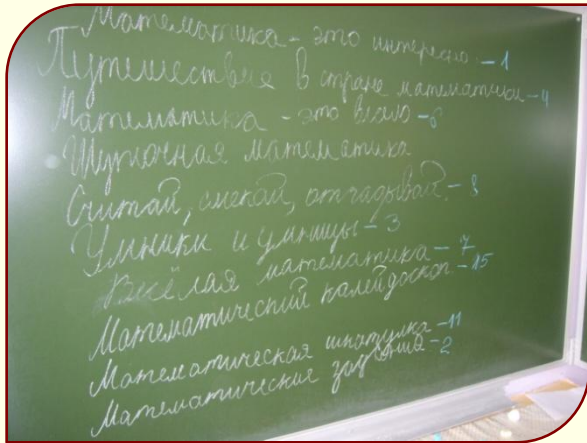 Математика - это интересно - 1
Путешествие в стране математики - 4
Математика - это весело - 6
Шуточная математика
Считай, смекай, отгадывай - 8
Умники и умницы - 3
Весёлая математика - 7
Математический калейдоскоп - 15
Математическая шкатулка - 11
Математические задания - 2